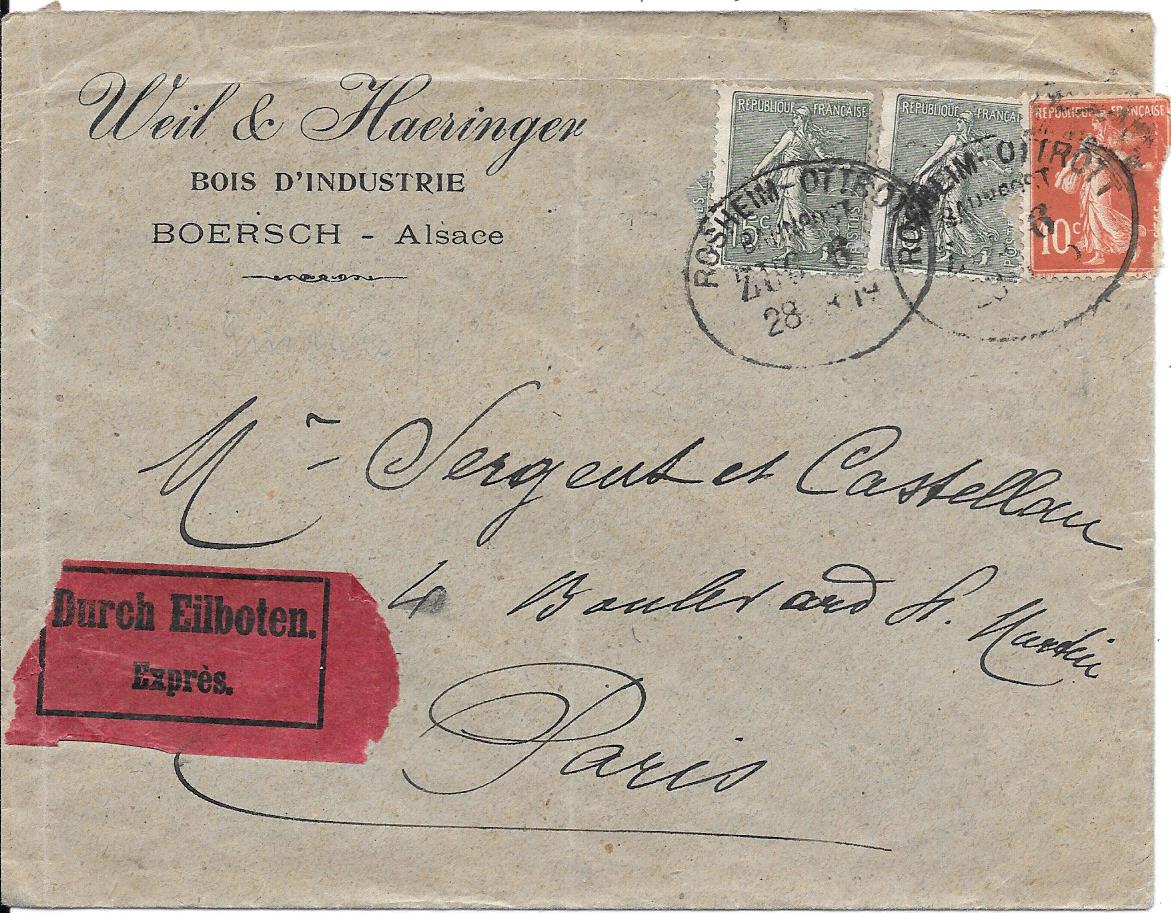 Weil & Haeringer
BOIS D'INDUSTRIE
BOERSCH - Alsace
REPUBLIQUE FRANÇAISE
15c
REPUBLIQUE FRANÇAISE
REPUBLIQUE FRANÇAISE
10c
ROSHEIM-OTTROTT
BAHNPOST
ZUG 6
28
ROSHEIM-OTTROTT
BAHNPOST
6
Mr Sergent et Castellan
4 Boulevard St. Martin
Paris
Durch Eilboten.
Exprès.